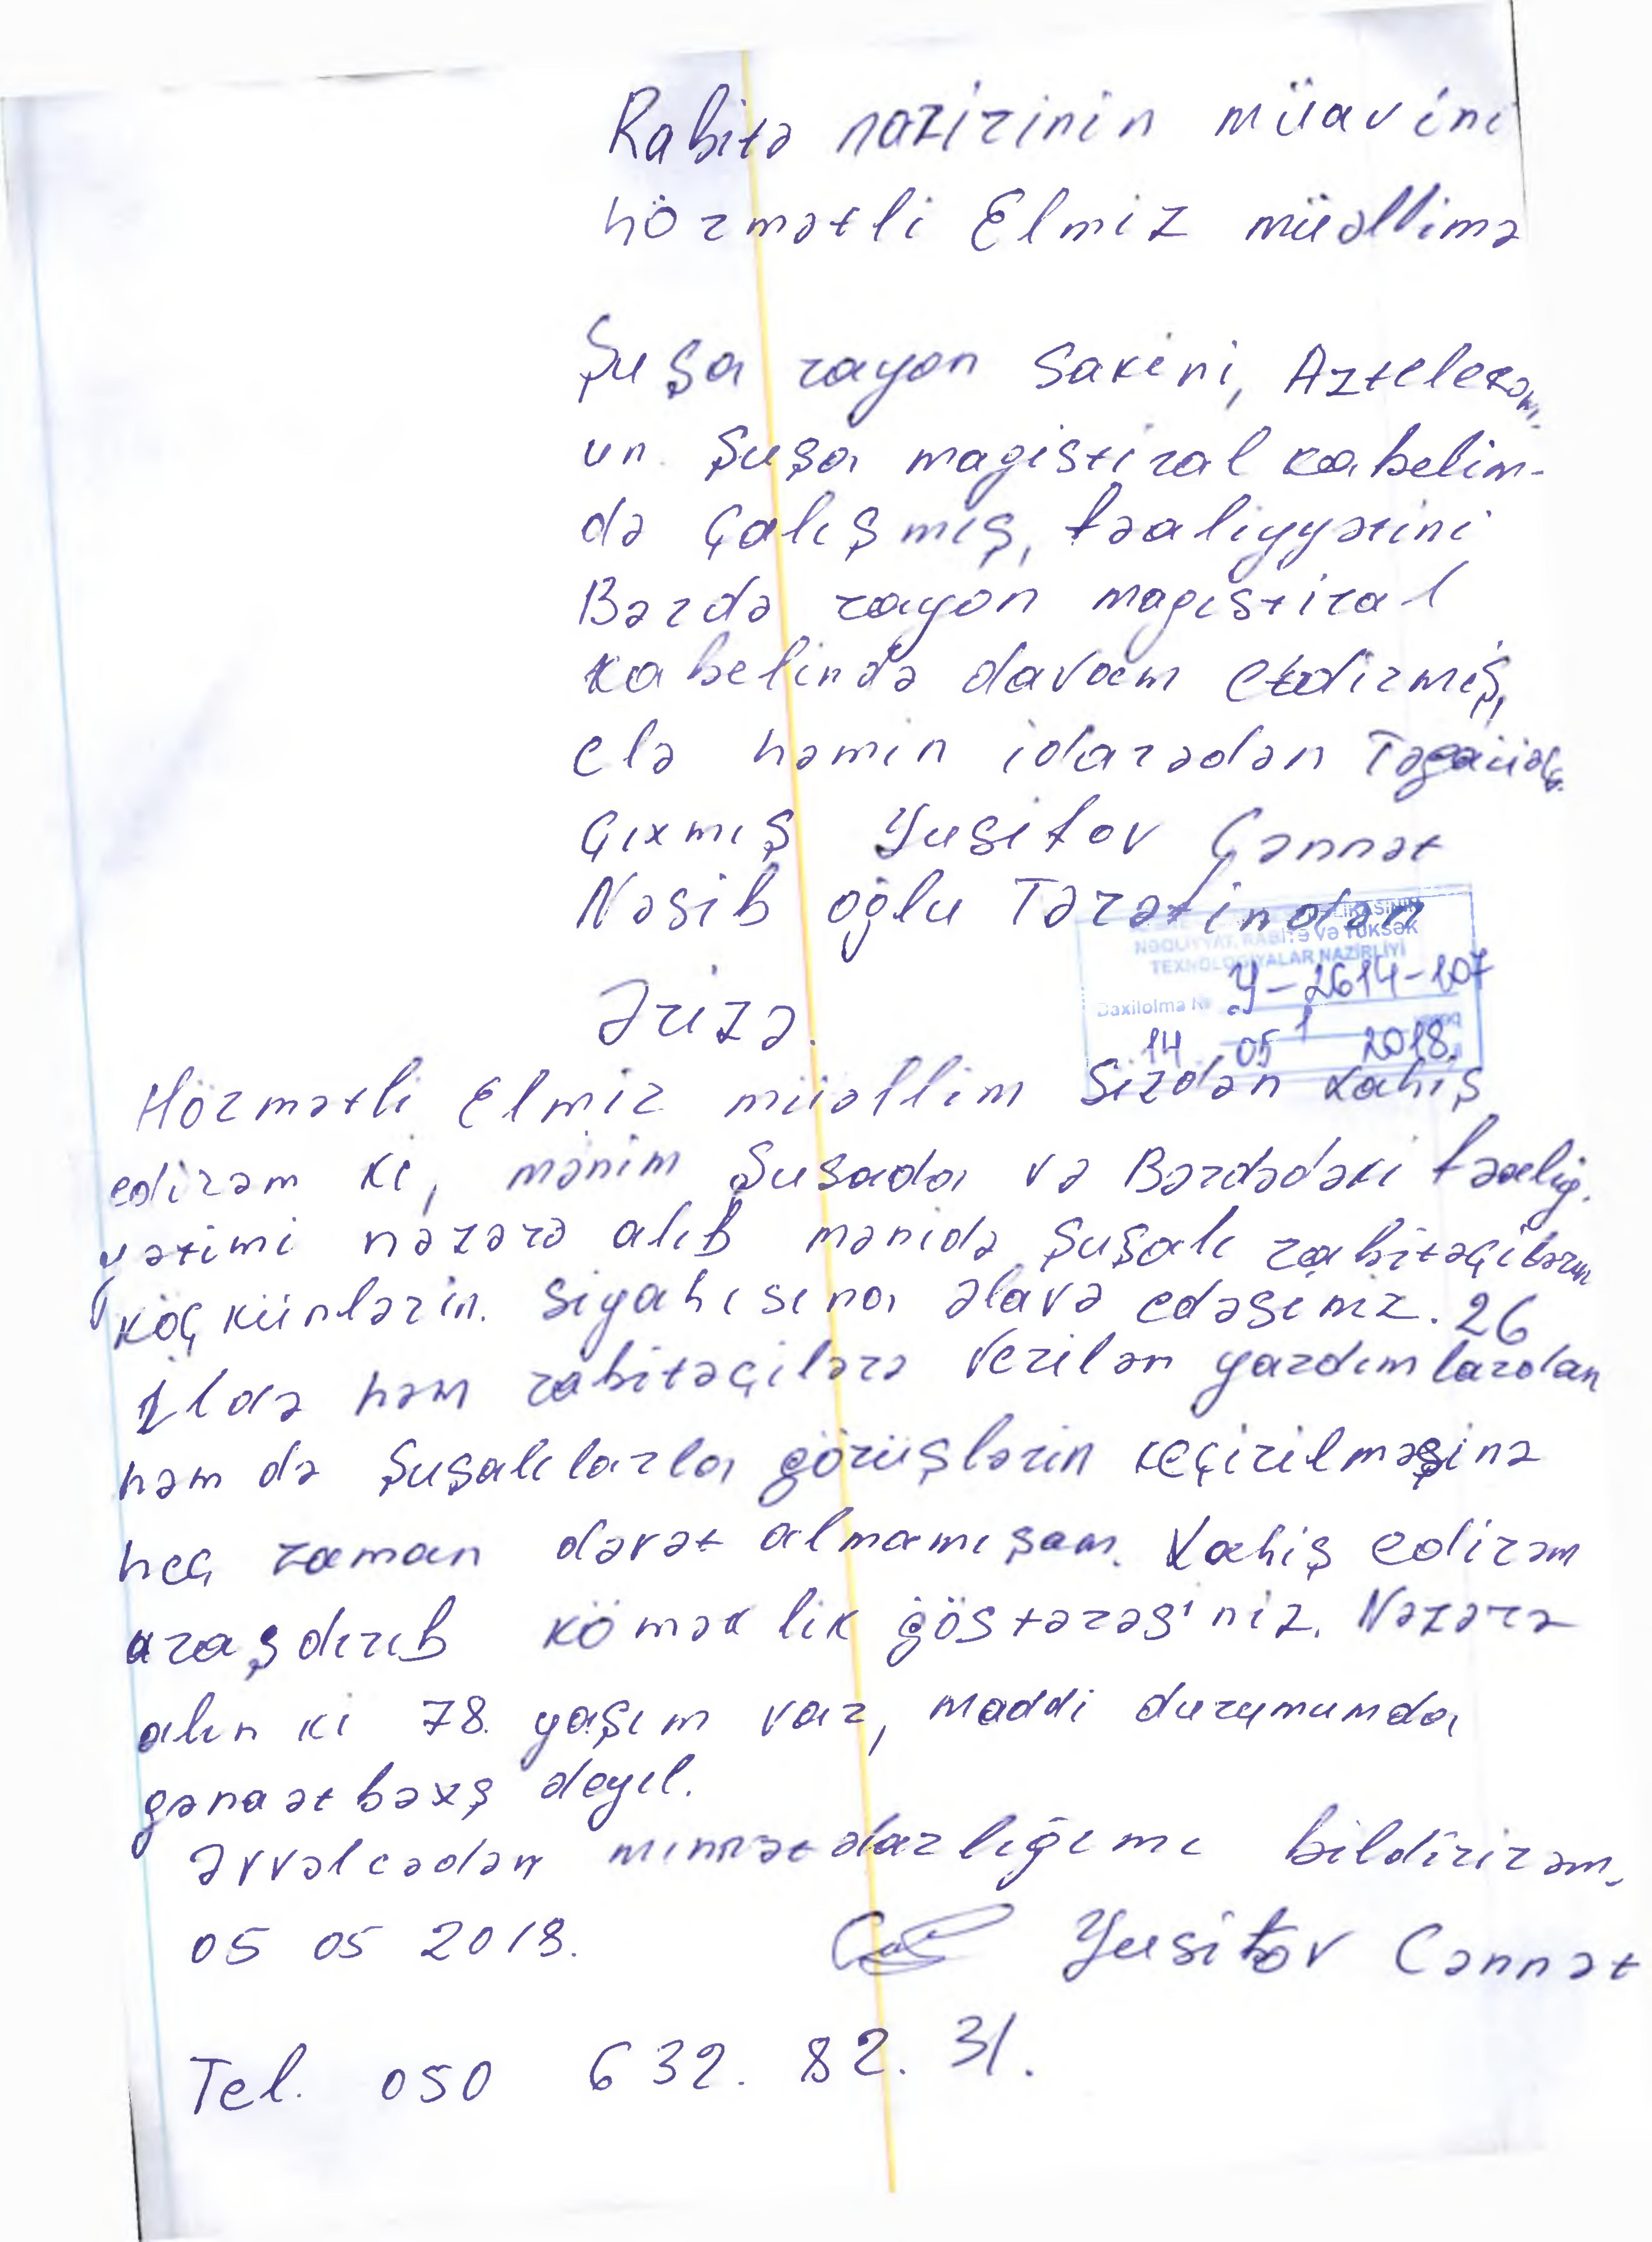 Rabitə nazirinin müavini
hörmətli Elmiz müəllimə
Şuşa rayon sakini, Aztelekom
un Şuşa magistiral kabelim-
də çalışmış, fəaliyyətini
Bərdə rayon magistiral
kabelində davam etdirmiş,
elə həmin idarədən Təqaüdə
çıxmış Yusifov Cənnət
Nəsib oğlu Tərəfindən
LİKASININ
NƏQLİYYAT, RABİTƏ VƏ YÜKSƏK
TEXNOLOGİYALAR NAZİRLİYİ
Daxilolma № Y-2614-107
14 05 1 2018.
Ərizə.
Hörmətli Elmir müəllim Sizdən Xahiş
edirəm ki, mənim Şuşada və Bərdədəki fəaliy-
yətimi nəzərə alıb mənidə Şuşalı rabitəçilərin
köçkünlərin. siyahısına əlavə edəsiniz. 26
İldə həm rabitəçilərə verilən yardımlardan
həm də Şuşalılarla görüşlərin keçirilməsinə
heç zaman dəvət almamışam. Xahiş edirəm
araşdırıb köməklik göstərəsiniz. Nəzərə
alın ki 78. yaşım var, maddi durumumda
qənaətbəxş deyil.
Əvvəlcədən minnətdarlığımı bildirirəm.
05 05 2018. Yusifov Cənnət
Tel. 050 632. 82. 31.